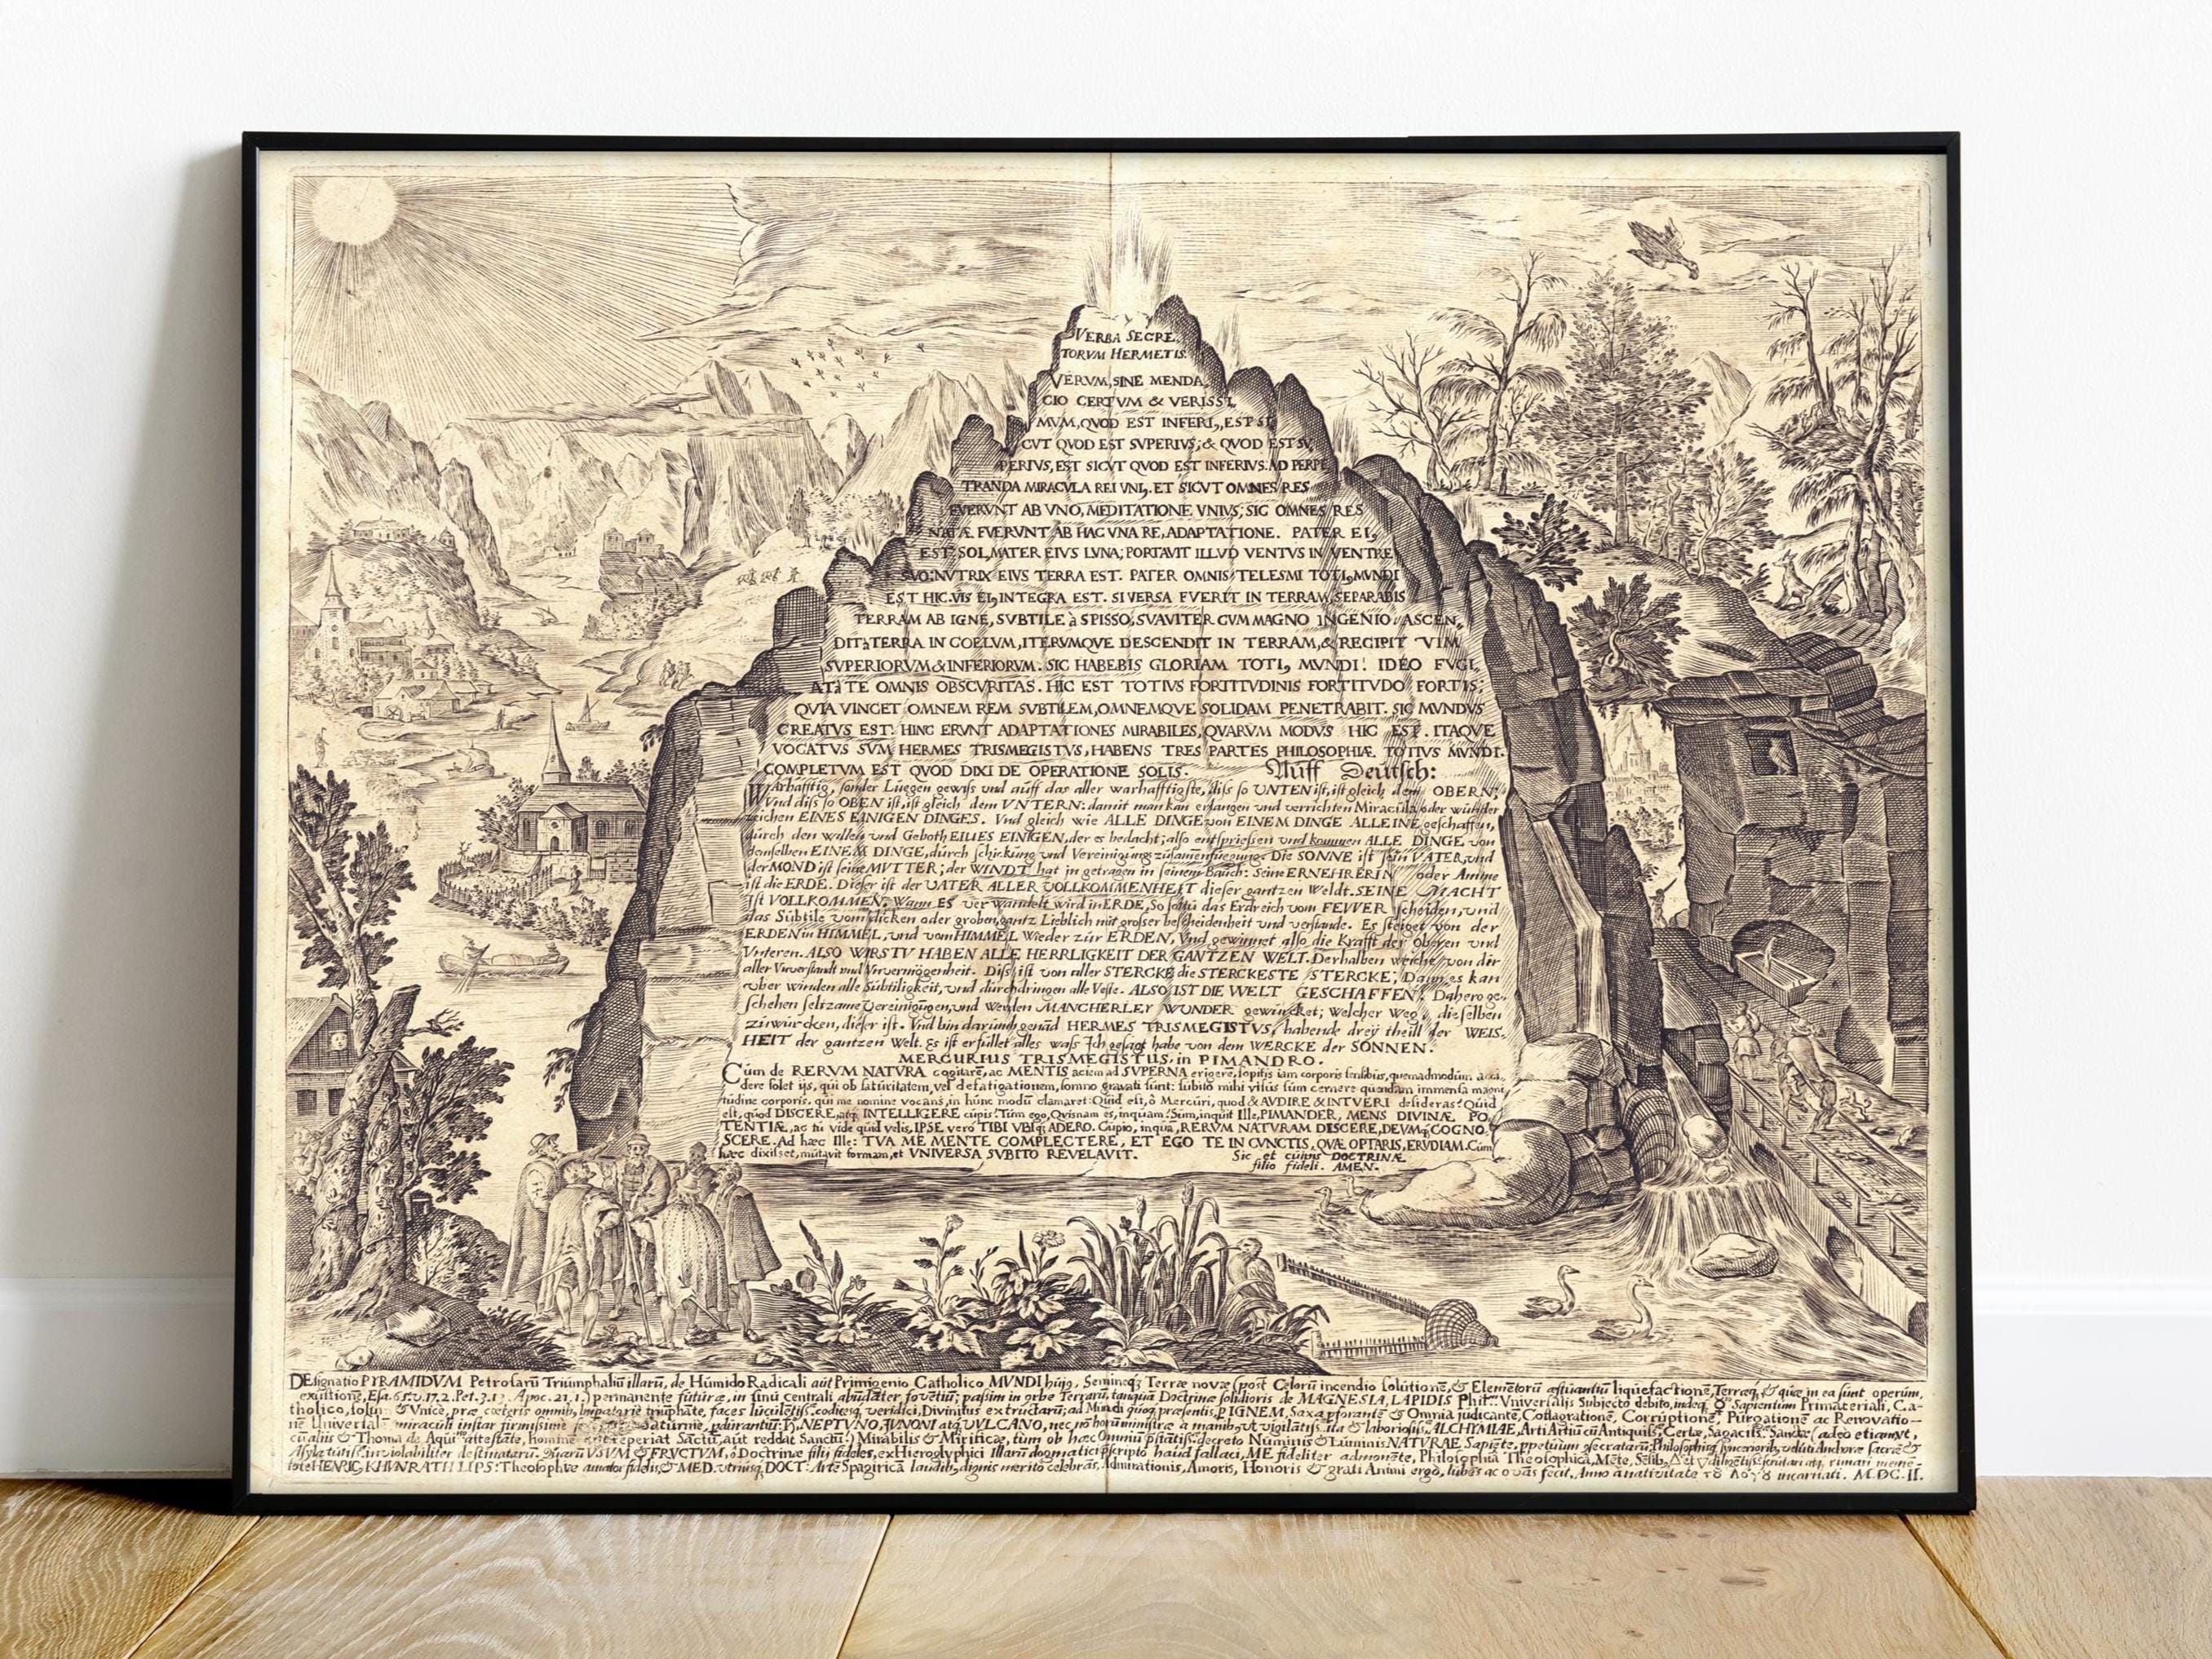 VERBA SECRE,
TORVM HERMETIS.
VERVM, SINE MENDA,
CIO CERTVM & VERISSI,
MVM, QVOD EST INFERI,, EST SI
CVT QVOD EST SVPERIVS; & QVOD EST SV,
PERIVS, EST SICVT QVOD EST INFERIVS. AD PERPE,
TRANDA MIRACVLA REI VNI,. ET SICVT OMNES RES
FVERVNT AB VNO, MEDITATIONE VNIVS; SIC OMNES RES
NATÆ FVERVNT AB HAC VNA RE, ADAPTATIONE. PATER EI,
EST SOL, MATER EIVS LVNA; PORTAVIT ILLVD VENTVS IN VENTRE
SVO: NVTRIX EIVS TERRA EST. PATER OMNIS TELESMI TOTI, MVNDI
EST HIC. VIS EI, INTEGRA EST. SI VERSA FVERIT IN TERRAM, SEPARABIS
TERRAM AB IGNE, SVBTILE à SPISSO, SVAVITER CVM MAGNO INGENIO. ASCEN,
DIT à TERRA IN COELVM, ITERVMQVE DESCENDIT IN TERRAM, & RECIPIT VIM
SVPERIORVM & INFERIORVM. SIC HABEBIS GLORIAM TOTI, MVNDI. IDEO FVGI,
AT à TE OMNIS OBSCVRITAS. HIC EST TOTIVS FORTITVDINIS FORTITVDO FORTIS;
QVIA VINCET OMNEM REM SVBTILEM, OMNEMQVE SOLIDAM PENETRABIT. SIC MVNDVS
CREATVS EST. HINC ERVNT ADAPTATIONES MIRABILES, QVARVM MODVS HIC EST. ITAQVE
VOCATVS SVM HERMES TRISMEGISTVS, HABENS TRES PARTES PHILOSOPHIÆ TOTIVS MVNDI.
COMPLETVM EST QVOD DIXI DE OPERATIONE SOLIS. Auff Deutsch:
WArhafftig, sonder Luegen gewiss vnd auff das aller warhafftigste, diss so VNTEN ist, ist gleich dem OBERN:
Vnd diss so OBEN ist, ist gleich dem VNTERN: damit man kan erlangen vnd verrichten Miracula oder wunder
zeichen EINES EINIGEN DINGES. Vnd gleich wie ALLE DINGE von EINEM DINGE ALLEINE geschaffen,
durch den willen vnd Geboth EINES EINIGEN, der es bedacht; also entspriessen vnd kommen ALLE DINGE von
demselben EINEM DINGE, durch schickung vnd Vereinigung zusamenfuegung. Die SONNE ist sein VATER, vnd
der MOND ist seine MVTTER; der WINDT hat in getragen in seinem Bauch: Seine ERNEHRERIN oder Amme
ist die ERDE. Dieser ist der VATER ALLER VOLLKOMMENHEIT dieser gantzen Weldt. SEINE MACHT
Ist VOLLKOMMEN, Wann ES verwandelt wird in ERDE, So soltu das Erdreich vom FEVVER scheiden, vnd
das Subtile vom dicken oder groben, gantz Lieblich mit grosser bescheidenheit vnd verstande. Er steiget von der
ERDEN in HIMMEL, vnd vom HIMMEL Wieder zur ERDEN, Vnd gewinnet also die Krafft der Oberen vnd
Vnteren. ALSO WIRSTV HABEN ALLE HERRLIGKEIT DER GANTZEN WELT. Derhalben weiche von dir
aller Vnverstandt vnd Vnvermögenheit. Diss ist von aller STERCKE die STERCKESTE STERCKE; Dann es kan
vber winden alle Subtiligkeit, vnd durchdringen alle Veste. ALSO IST DIE WELT GESCHAFFEN. Dahero ge,
schehen seltzame Vereinigungen, vnd Werden MANCHERLEY WVNDER gewürcket; Welcher Weg, dieselben
zuwürcken, dieser ist. Vnd bin darumb genand HERMES TRISMEGISTVS, habende drey theill der WEIS,
HEIT der gantzen Welt. Es ist erfüllet alles wass Ich gesagt habe von dem WERCKE der SONNEN.
MERCURIUS TRISMEGISTUS, in PIMANDRO.
Cum de RERVM NATVRA cogitarē, ac MENTIS aciem ad SVPERNA erigerē, sopitis iam corporis sensibus, quemadmodum acci,
dere solet ijs, qui ob saturitatem, vel defatigationem, somno gravati sunt: subito mihi visus sum cernere quendam immensa magni
tudine corporis, qui me nomine vocans, in hunc modū clamaret: Quid est, ô Mercuri, quod & AVDIRE & INTVERI desideras? Quid
est, quod DISCERE, atq; INTELLIGERE cupis? Tum ego, Quisnam es, inquam? Sum, inquit Ille, PIMANDER, MENS DIVINÆ PO,
TENTIÆ, ac tu vide quid velis, IPSE vero TIBI VBIQ; ADERO. Cupio, inquā, RERVM NATVRAM DISCERE, DEVMq; COGNO,
SCERE. Ad hæc Ille: TVA ME MENTE COMPLECTERE, ET EGO TE IN CVNCTIS, QVÆ OPTARIS, ERVDIAM. Cum
hæc dixisset, mutavit formam, et VNIVERSA SVBITO REVELAVIT.
Sic et cuius DOCTRINÆ
filio fideli. AMEN.
DEsignatio PYRAMIDVM Petrosarū Triumphaliū illarū, de Humido Radicali aut Primigenio Catholico MVNDI huj9, Semineq; Terræ novæ (post Celorū incendio solutionē, & Elementorū æstuantiū liquefactionē, Terræq, & quæ in ea sunt operum,
exustionē, Esa. 65. v. 17, 2. Pet. 3. 13. Apoc. 21, 1.) permanente futuræ, in sinu centrali abūdāter fovētiū; passim in orbe Terrarū, tanquā Doctrinæ solidioris de MAGNESIA, LAPIDIS Phil. Vniversalis Subjecto debito, indeq, Sapientum Primateriali, Ca-
tholico, & Vnice, præ cæteris omnib, faces luculētiss. codicesq, veridici, Divinitus extructarū; ad Mundi quoq, præsentis, P IGNEM, Saxa pforante & Omnia judicante, Coflagrationē, Corruptionē, Purgationē ac Renovatio-
nē Vniversalē miraculi instar firmissime Saturnie, NEPTVNO, IVNONI atq, VVLCANO, nec nō ALCHYMIAE, Arti Artiū cū Antiquiss. Certæ, Sagaciss. Sanctæ (adeo etiam vt,
cū aliis & Thoma de Aqui attestāte, reperiat Sāctū, aut reddat Sanctū:) Mirabilis & Mirificæ, tum ob hæc decreto Numinis & Luminis NATVRAE
VSVM & FRVCTVM, ô Doctrinæ filij fideles, ex Hieroglyphici Illarū dogmatici pscripto haud fallaci, ME fideliter admonēte, Philosophia Theosophica,
HENRIC, KHVNRATH LIPS: Theosophiæ amator fidelis, & MED. vtriusq, DOCT: Arte Spagiricā laudib, dignis merito celebrās, Admirationis, Amoris, Honoris & grati Animi ergò, lubēs ac ovās fecit, Anno à nativitate τȣ̃ λόγȣ incarnati. M.DC.II.